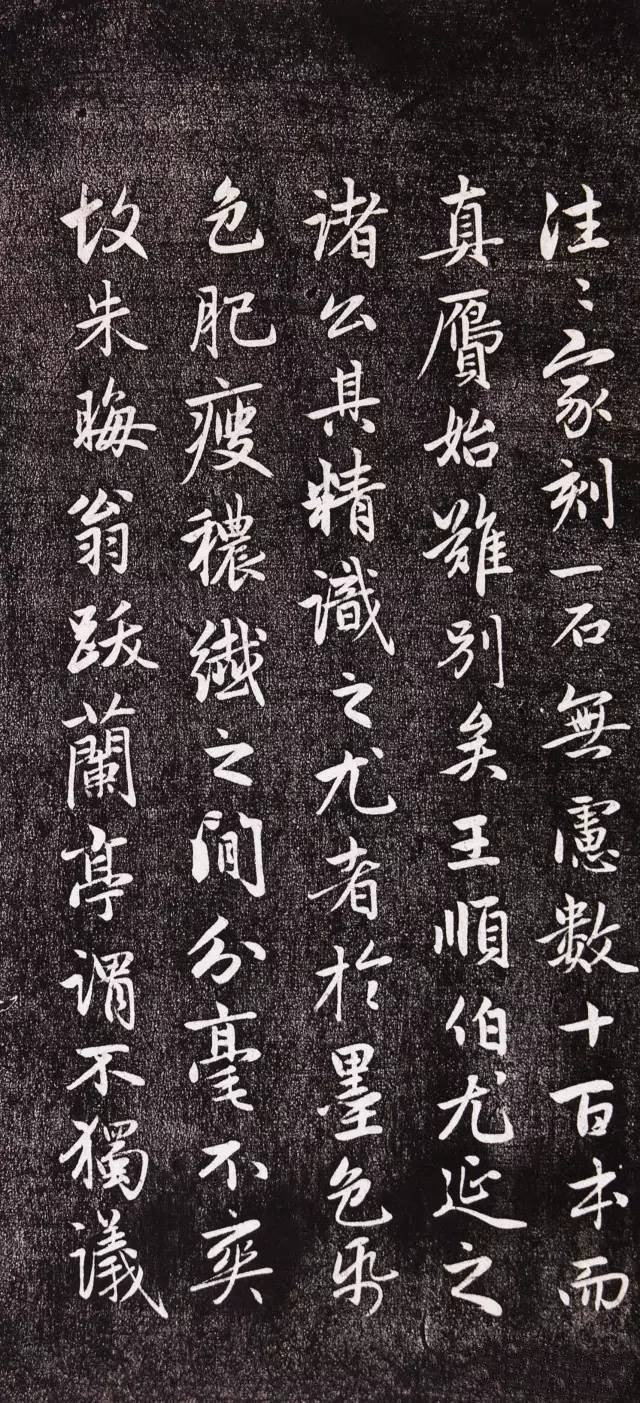 往〻家刻一石無慮數十百本而
真贗始難別矣王順伯尤延之
諸公其精識之尤者於墨色帋
色肥瘦穠纖之間分毫不爽
故朱晦翁跋蘭亭謂不獨議